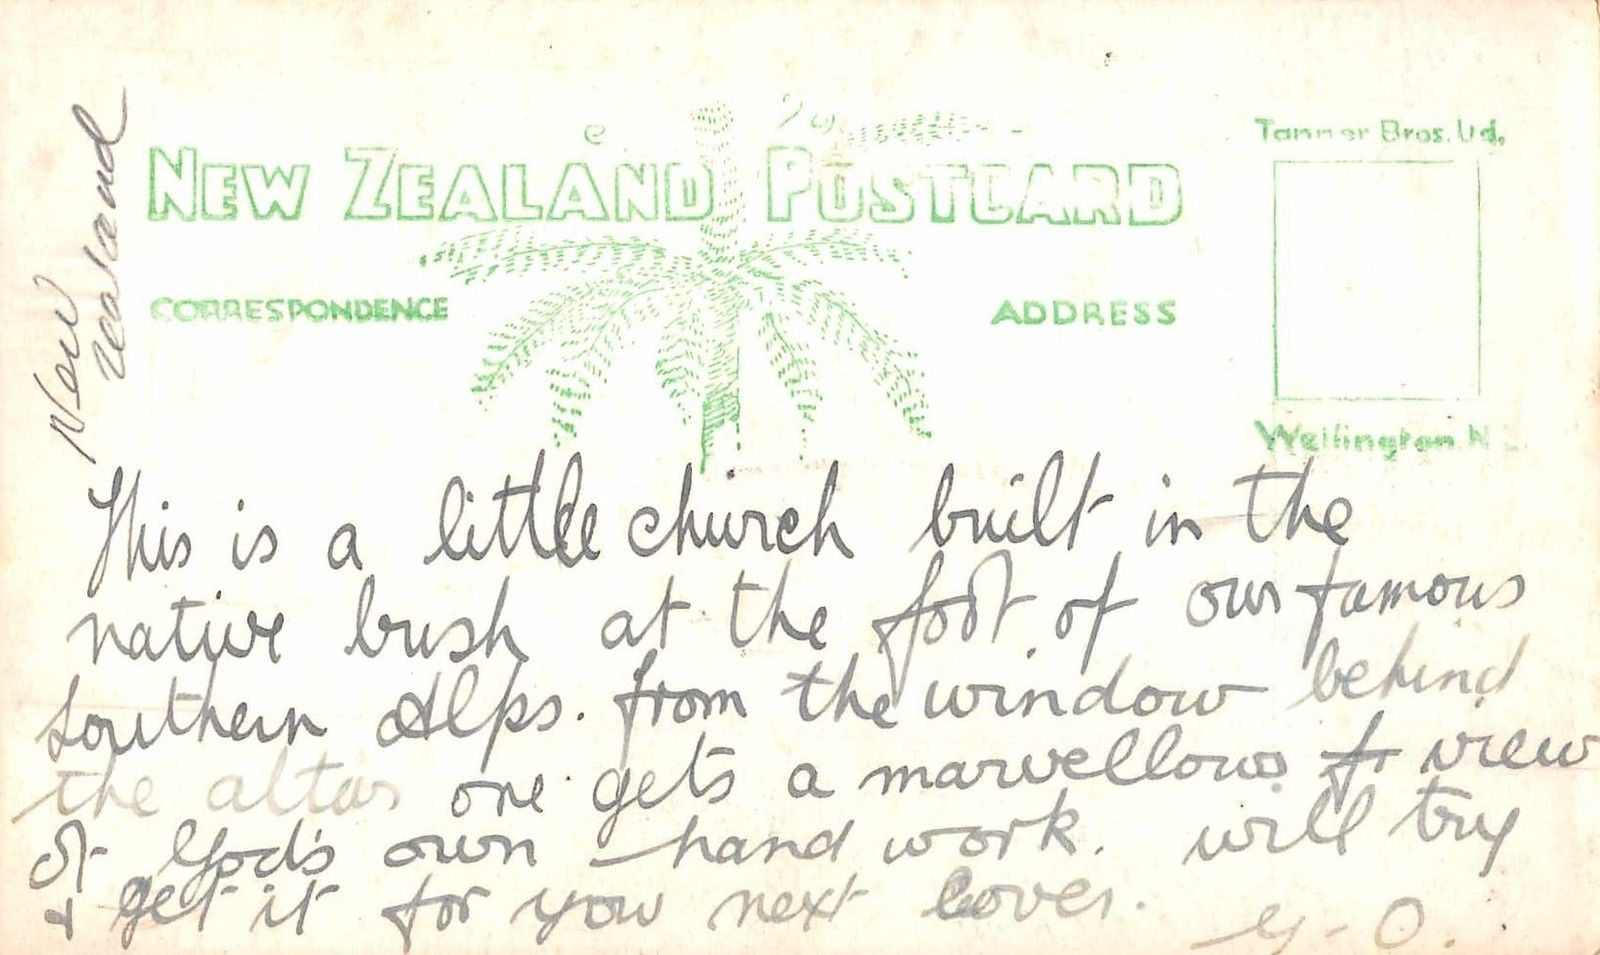 New
Zealand
NEW ZEALAND POSTCARD
Tanner Bros. Ltd,
CORRESPONDENCE
ADDRESS
Wellington. N
This is a little church built in the
native bush at the foot of our famous
Southern Alps. from the window behind
the altar one gets a marvellous view
of God's own hand work. will try
& get it for you next
G. O.